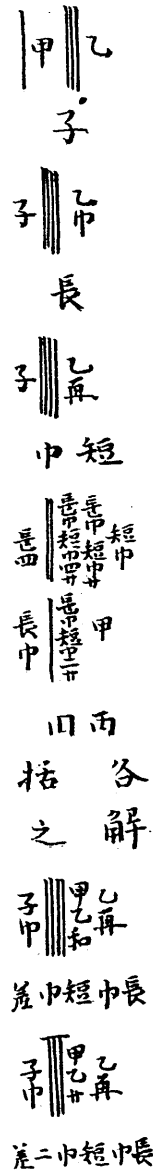 甲 乙
子
子 乙巾
長
子 乙再
巾短
長四 長巾短巾四廾 長巾短巾廾 短巾
長巾 長巾短巾二廾 甲
旧丙
括 各
之 解
子巾 甲乙和 乙再
差巾短巾長
子巾 甲乙廾 乙再
差二巾短巾長